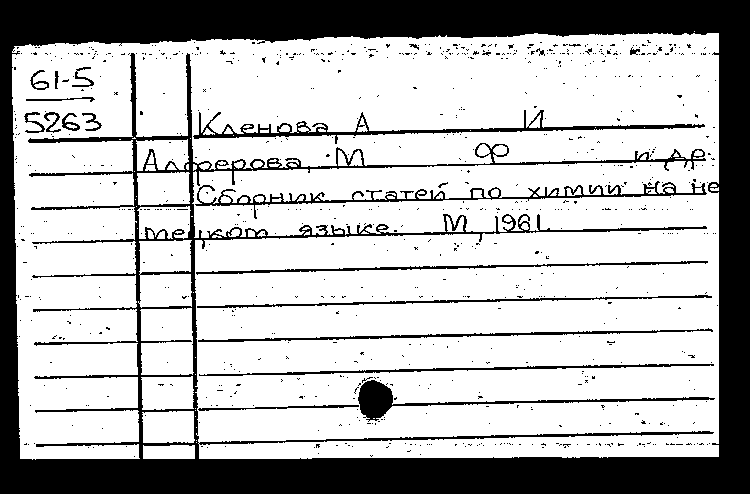 61-5
5263
Кленова, А И
Алферова, М Ф и др.
Сборник статей по химии на не
мецком языке. М, 1961.